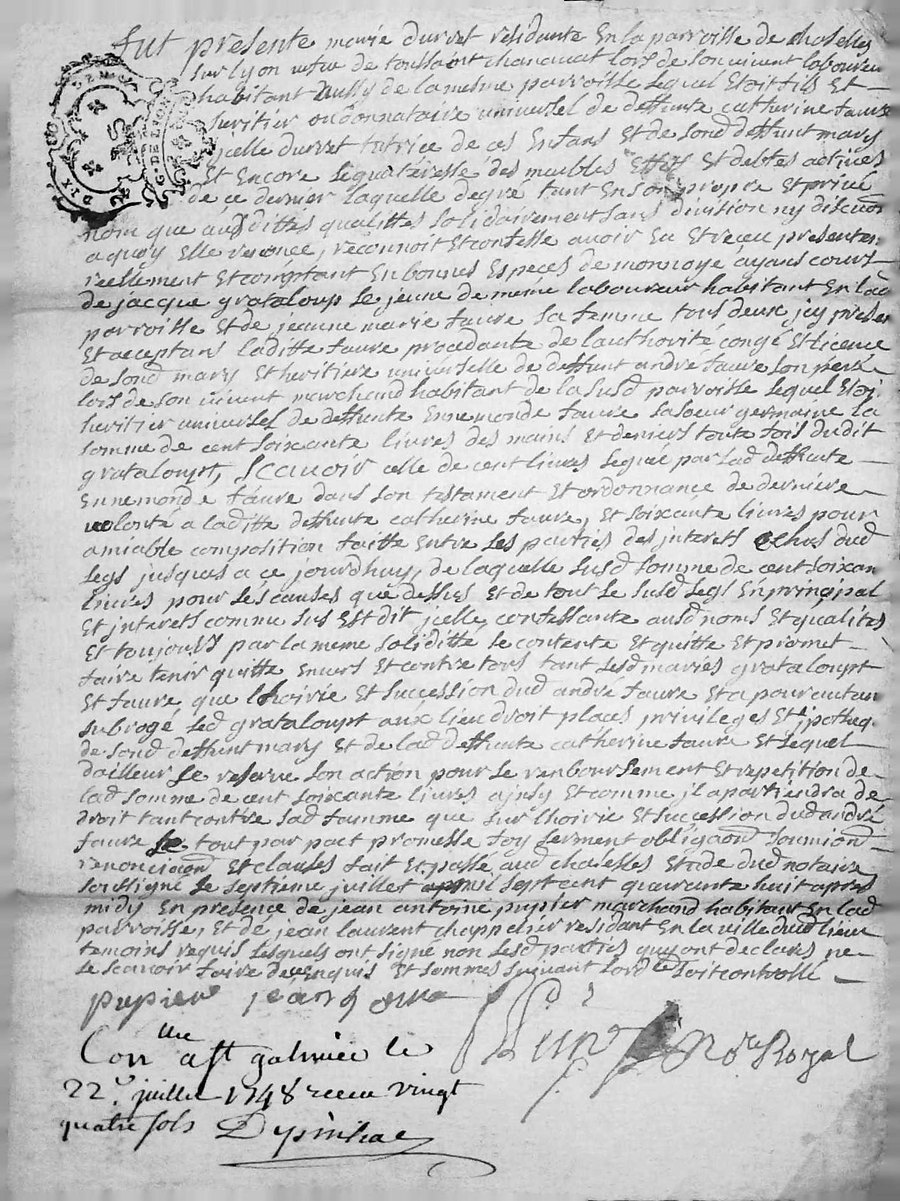 fut presente marie durret residante En la parroisse de chaselles
sur lyon vefve de toussaint chanavat lors de son vivant laboureur
habitant Aussy de la mesme parroisse lequel Etoit fils Et
heritier ou donnataire universel de deffunte catherine faure
jcelle durret tutrice de ces Enfans Et de sond deffunt mary
Et Encore sequiteresse des meubles Effets Et debtes actives
de ce dernier laquelle degré tant En son propre Et privé
nom que ausdittes qualittes solidairement sans division ny discuon
a quoy Elle renonce, reconnoit Et confesse avoir Eu Et receu presentem
reellement Et comptant En bonnes Especes de monnoye ayans cours
de jacque grataloup le jeune de meme laboureur habitant En lad
parroisse Et de jeanne marie faure sa femme tous deux jcy presen
Et acceptans laditte faure procedante de l'authorité congé Et licence
de sond mary Et heritiere universelle de deffunt andré faure son pere
lors de son vivant marchand habitant de la susd parroisse lequel Etoi
heritier universel de deffunte Ennemonde faure sa soeur germaine la
somme de cent soixante livres des mains Et deniers toute fois dudit
grataloupt, Scavoir celle de cent livres legué par lad deffunte
Ennemonde faure dans son testament Et ordonnance de derniere
volonté a laditte deffunte catherine faure, Et soixante livres pour
amiable composition faitte Entre les parties des interets Echus dud
legs jusques a ce jourdhuy, de laquelle susd somme de cent soixan
livres pour les causes que dessus Et de tout le susd legs En principal
Et jnterets comme sus Est dit jcelle, confessante ausd noms Et qualités
Et toujours par la meme soliditté se contente Et quitte Et promet
faire tenir quitte Envers Et contre tous tant lesd mariés grataloupt
Et faure, que l'hoirie Et succession dud andré faure Et a pour autan
subrogé led grataloupt aux lieu droit places privileges Et jpotheq
de sond deffunt mary Et de lad deffunte catherine faure Et lequel
dailleur se reserve son action pour le renboursement Et repetition de
lad somme de cent soixante livres ainsy Et comme jl apartiendra de
droit tant contre sad famme que sur l'hoirie Et succession dud andré
faure tout par pact promesse foy serment obligaon soumion
renonciaon Et clauses fait Et passé aud chaselles Etude dud notaire
soussigné le septieme juillet mil sept cent quarante huit apres
midy En presence de jean antoine pupier marchand habitant En lad
parroisse, Et de jean laurent chappelier residant En la ville dud lieu
temoins requis lesquels ont signé non lesd parties qui ont declarés ne
le scavoir faire de ce Enquis Et sommes suivant lord ce soit controllé
pupier
Nore Royal
Conlle a St galmier le
22e juillet 1748 receu vingt
quatre sols